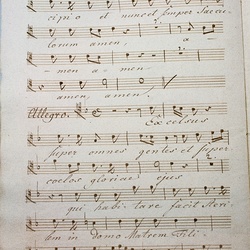 cipio et nunc et semper saecu-
lorum amen, a-
men a-men
amen, amen.
Allegro. Excelsus
super omnes gentes et super
coelos gloriae ejus
qui habi-tare facit steri-
lem in domo Matrem fili-